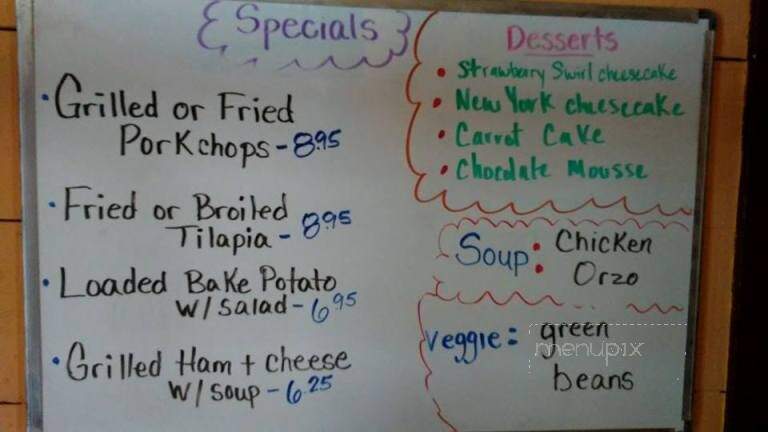 Specials
• Grilled or Fried
Porkchops - 8.95
• Fried or Broiled
Tilapia - 8.95
• Loaded Bake Potato
w/ salad - 6.95
• Grilled Ham + cheese
w/ soup - 6.25
Desserts
• Strawberry Swirl cheesecake
• New York cheesecake
• Carrot Cake
• Chocolate Mousse
Soup: Chicken
Orzo
veggie: green
menupix
beans